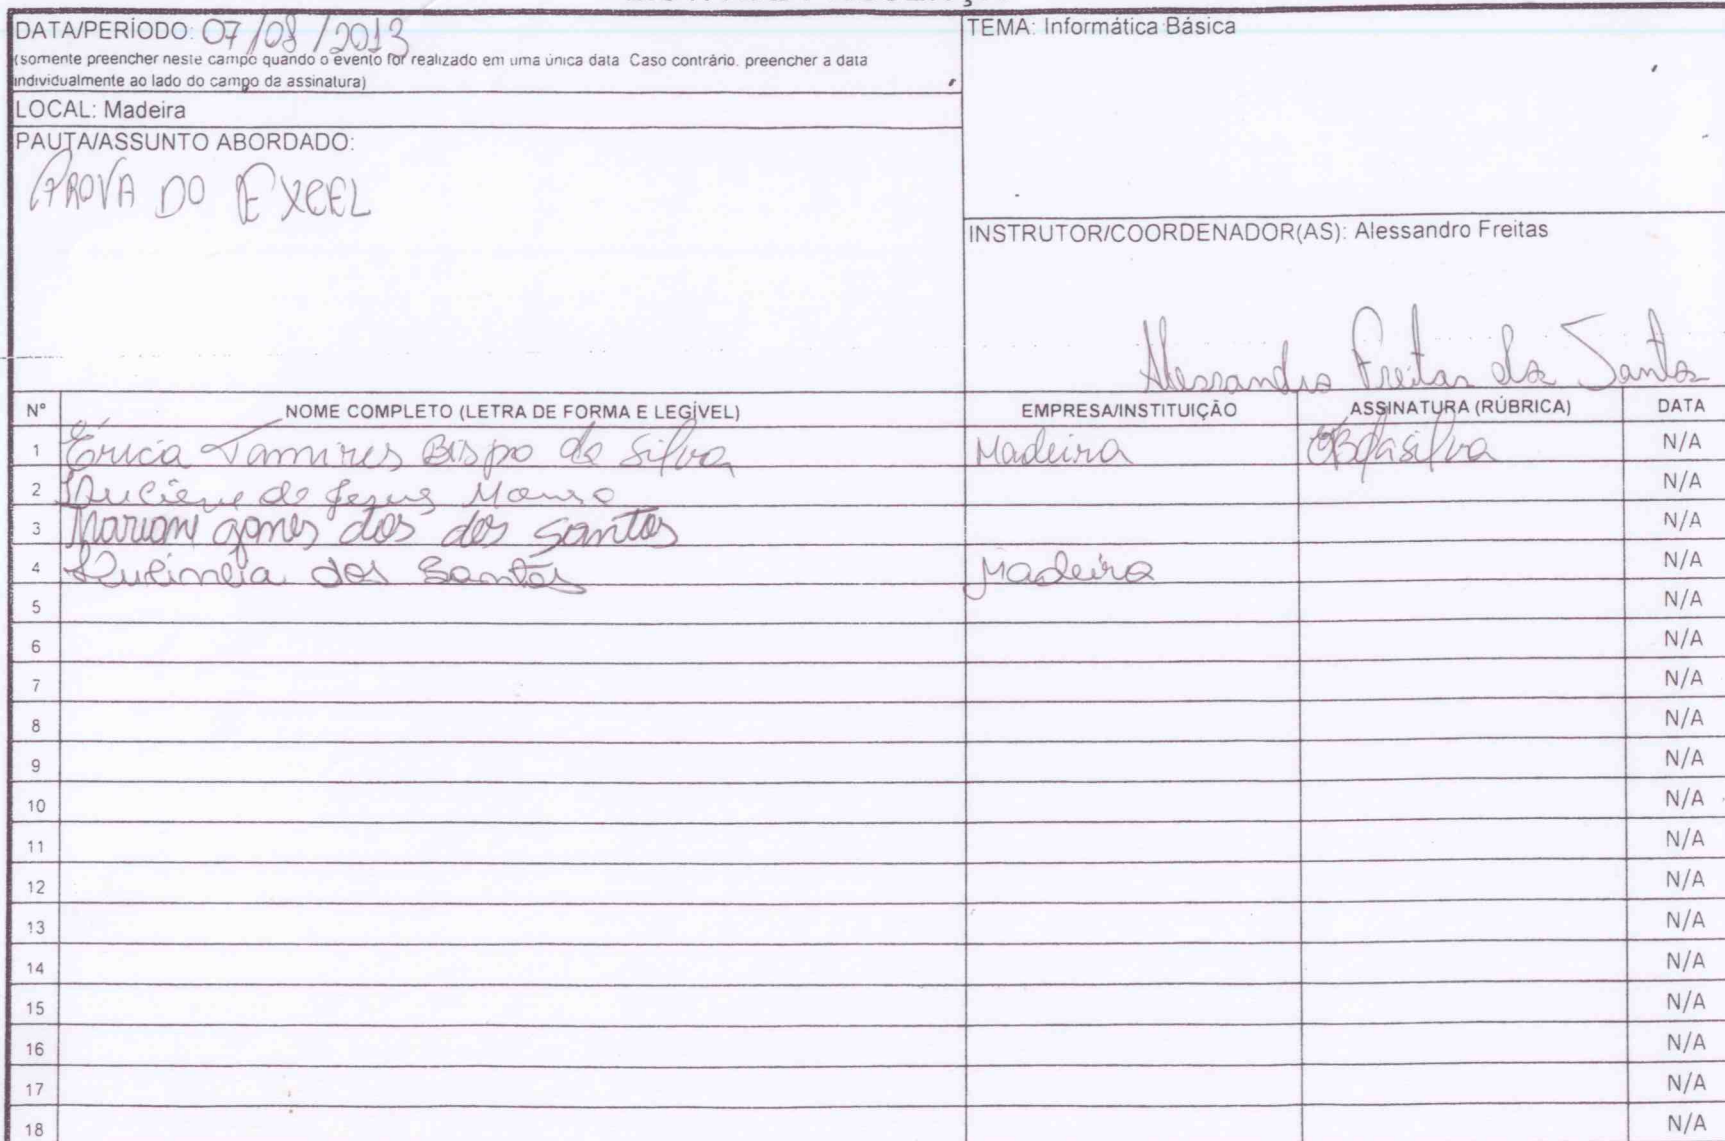 DATA/PERÍODO: 07/08/2013
(somente preencher neste campo quando o evento for realizado em uma única data Caso contrário, preencher a data
individualmente ao lado do campo da assinatura)
LOCAL: Madeira
PAUTA/ASSUNTO ABORDADO:
PROVA DO EXCEL
TEMA: Informática Básica
INSTRUTOR/COORDENADOR(AS): Alessandro Freitas
Alessandro Freitas dos Santos
N° NOME COMPLETO (LETRA DE FORMA E LEGÍVEL) EMPRESA/INSTITUIÇÃO ASSINATURA (RÚBRICA) DATA
1 Érica Tamires Bispo da Silva Madeira N/A
2 de Jesus N/A
3 gomes dos dos santos N/A
4 dos Santos Madeira N/A
5 N/A
6 N/A
7 N/A
8 N/A
9 N/A
10 N/A
11 N/A
12 N/A
13 N/A
14 N/A
15 N/A
16 N/A
17 N/A
18 N/A